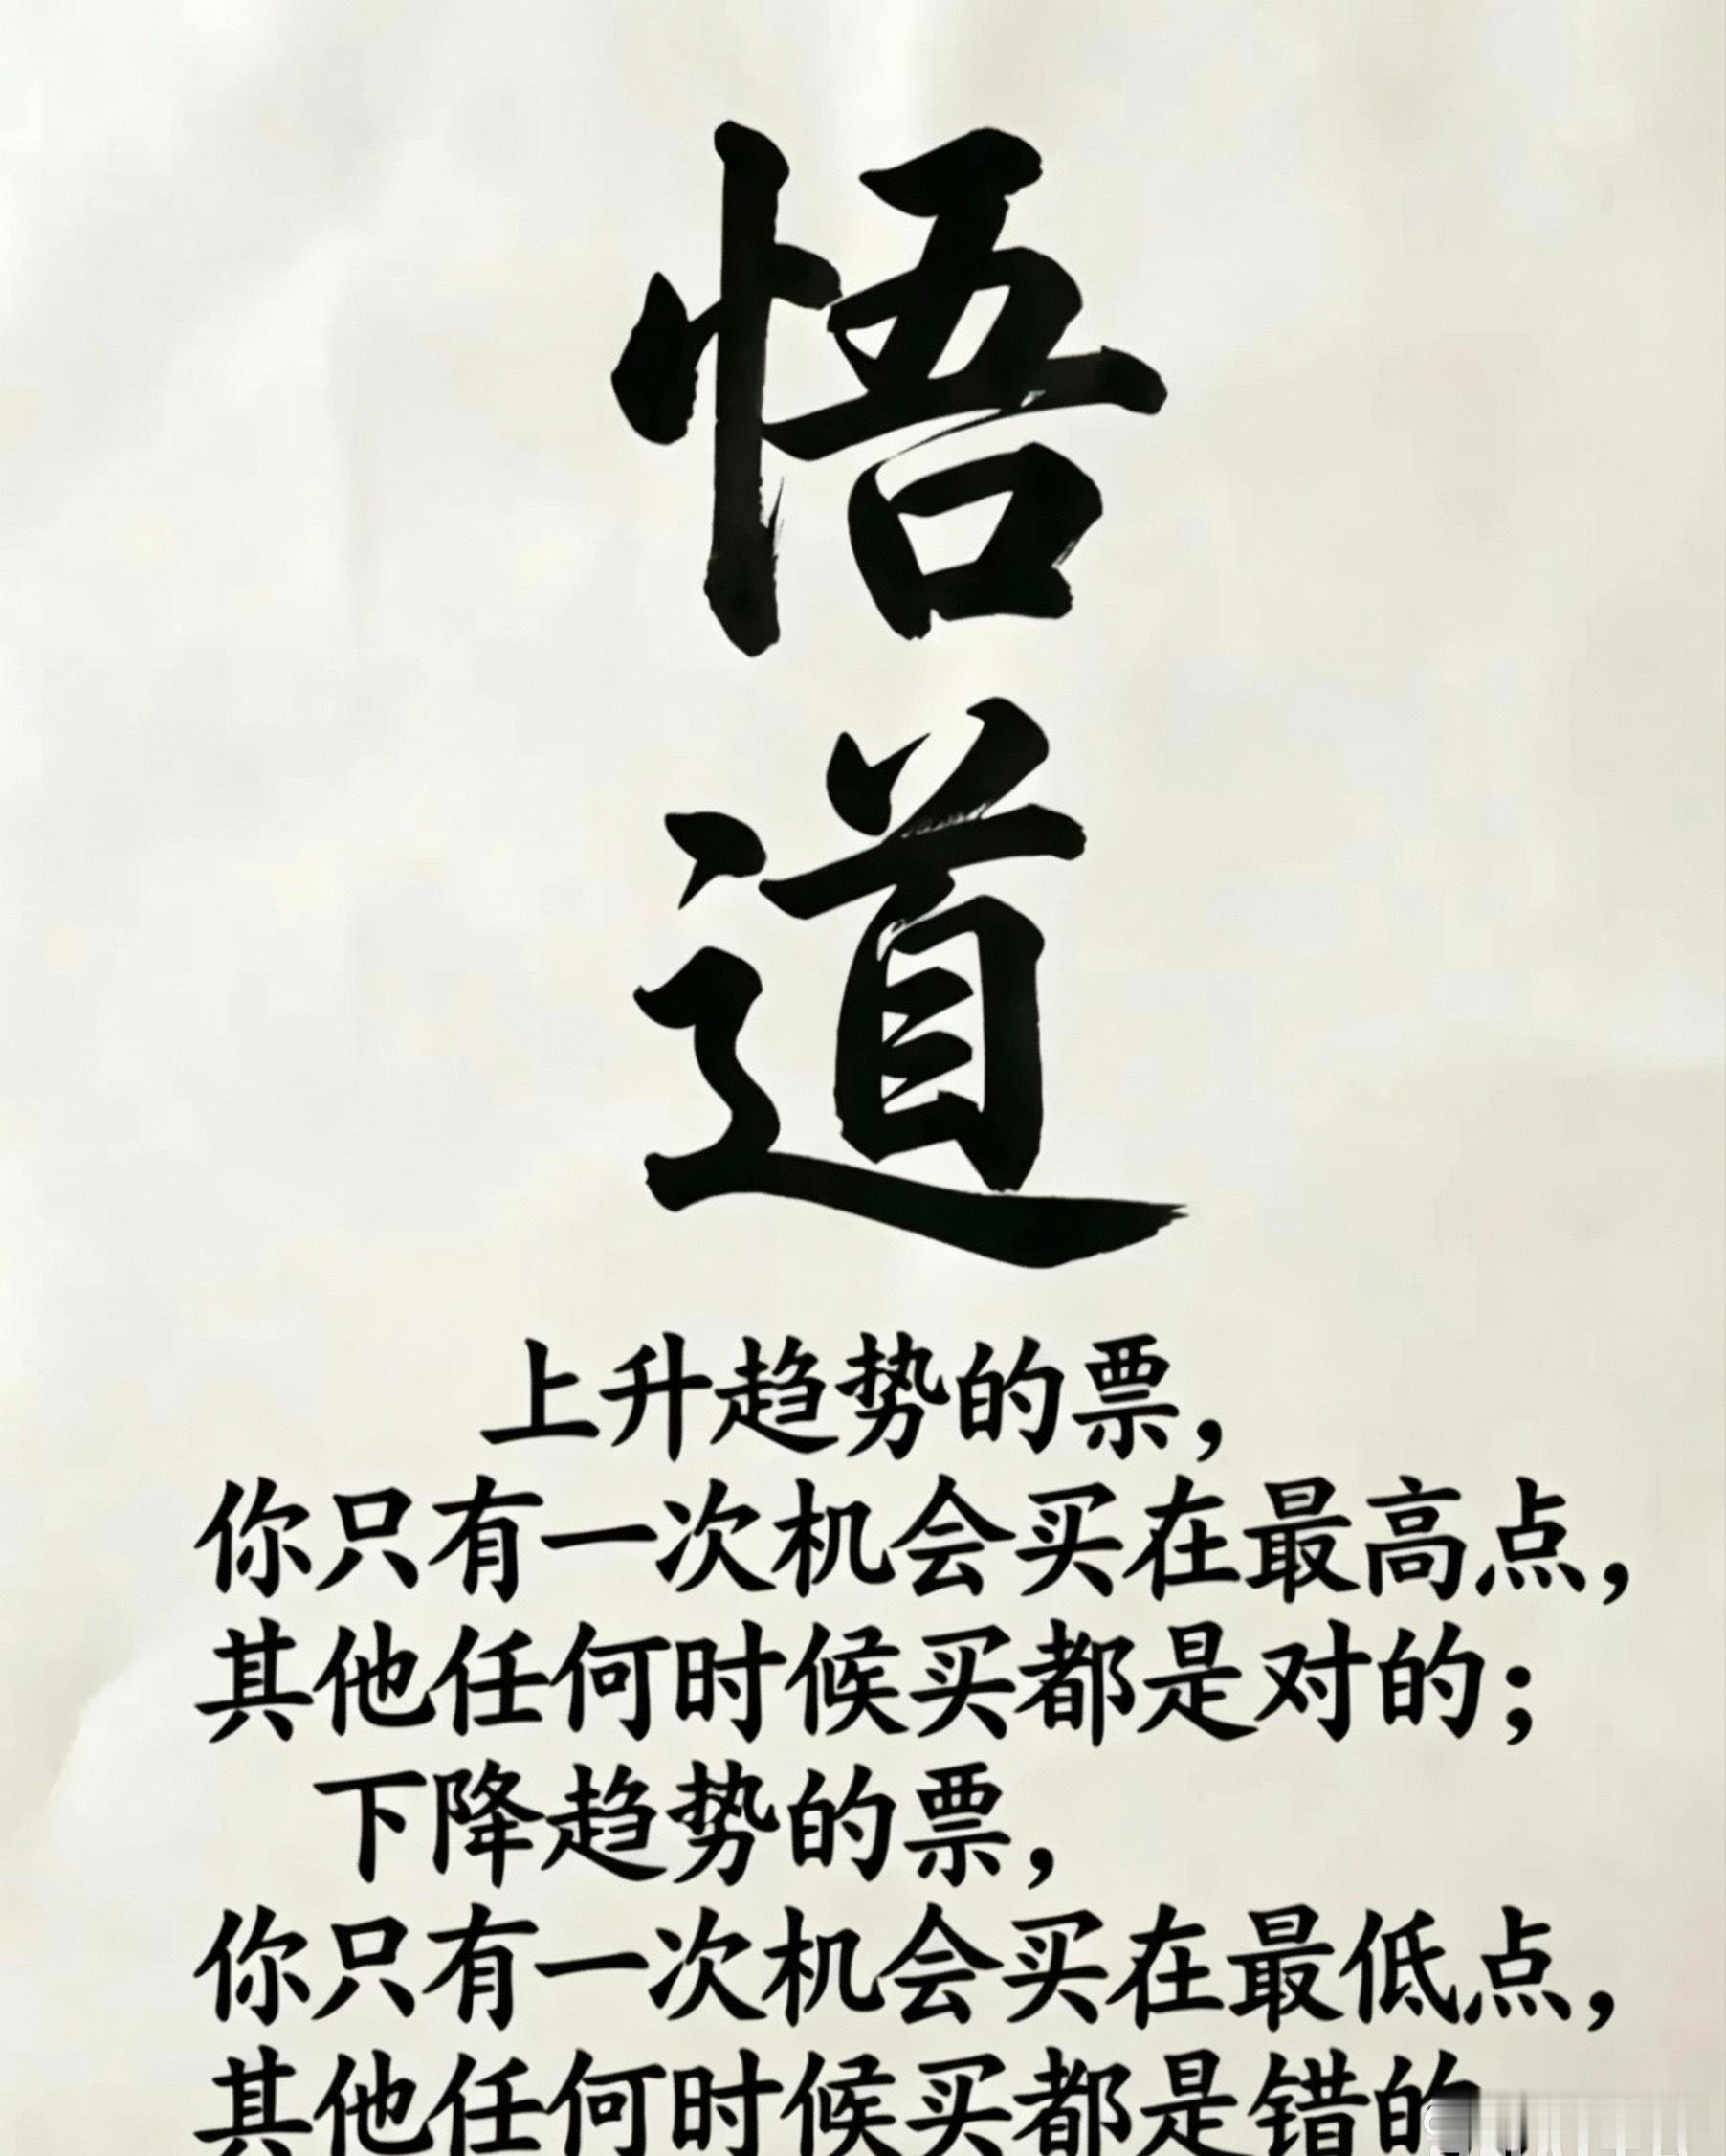 悟
道
上升趋势的票，
你只有一次机会买在最高点，
其他任何时候买都是对的；
下降趋势的票，
你只有一次机会买在最低点，
其他任何时候买都是错的